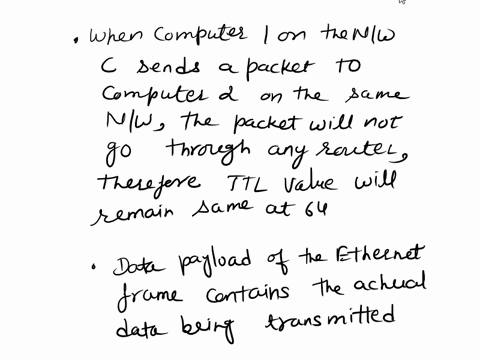 • When Computer 1 on the N/W
C sends a packet to
Computer 2 on the same
N/W, the packet will not
go through any router,
therefore TTL value will
remain same at 64
• Data payload of the Ethernet
frame contains the actual
data being transmitted